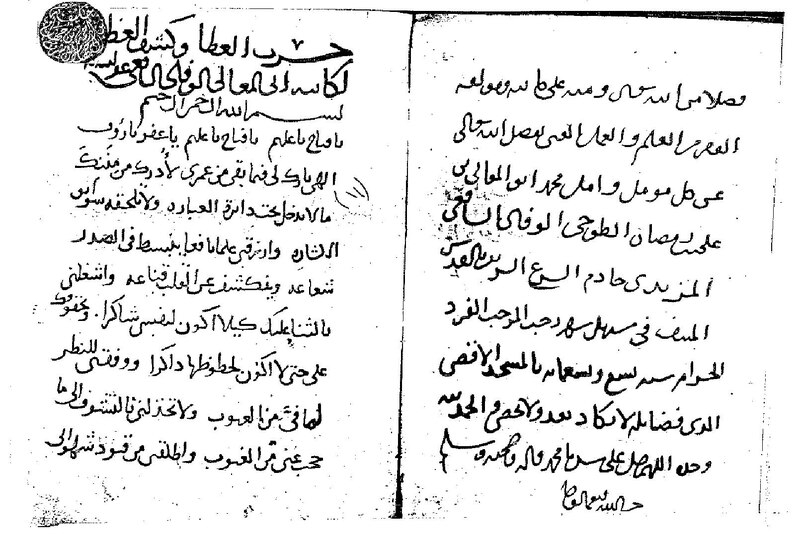 فضلا من الله تعالى ومنه على كاتبه ومولفه
الفقير من العلم والعمل الغني بفضل الله تعالى
عن كل مومل وامل محمد ابو المعالي بن
علي بن رمضان الطوخي الوفائي الشافعي
خادم الشرع الشريف بالقدس
المنيف في مستهل شهر رجب المرجب الفرد
الحرام سنه تسع وتسعمايه بالمسجد الاقصى
الذي فضايله لا تكاد تعد ولا تحصى والحمد لله
وحده اللهم صل على سيدنا محمد واله وصحبه وسلم
حزب العطا وكشف الغطا
لكاتبه ابي المعالي الوفائي الشافعي
بسم الله الرحمن الرحيم
يا فتاح يا عليم يا فتاح يا عليم يا غفور يا روف
الهي بارك لي فيما بقي من عمري لأدرك من مننك
ما لا يدخل تحت دائرة العباره ولا تلحقه سوابق
الاشاره وارزقني علما نافعا ينبسط في الصدر
شعاعه ويكشف عن القلب قناعه واشغلني
بالثنا عليك كيلا اكون لنفسي شاكرا وبحقوقك
علي حتى لا اكون لحظوظها ذاكرا ووفقني للنظر
لما في من العيوب ولا تخذلني بالتشوف الى ما
حجب عني من الغيوب واطلقني من قيود شهواتي